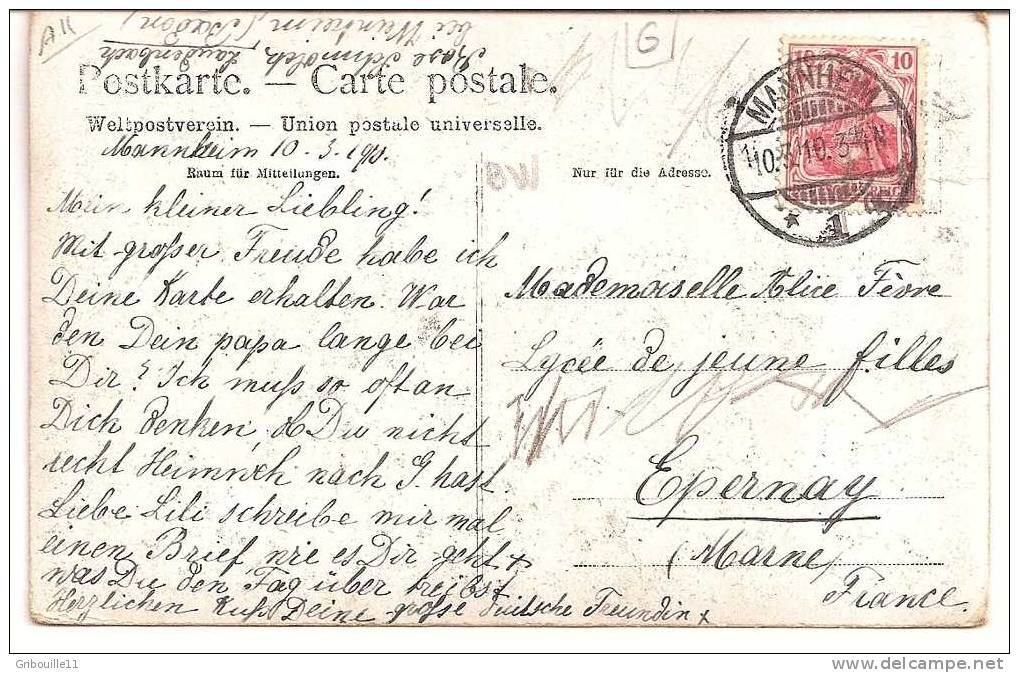 bei Weinheim (Baden)
Laudenbach
Postkarte. — Carte postale.
Weltpostverein. — Union postale universelle.
Mannheim 10. 3. 190.
Raum für Mitteilungen.
Nur für die Adresse.
Mein kleiner Liebling!
Mit großer Freude habe ich
Deine Karte erhalten. War
den Dein papa lange bei
Dir? Ich muß so oft an
Dich denken, Du nicht
recht Heimweh nach G. hast
Liebe Lili schreibe mir mal
einen Brief wie es Dir geht +
was Du den Tag über treibst
Herzlichen Kuß Deine große deutsche Freundin +
MANNHEIM
10
1
G
Mademoiselle Alice Fèvre
Lycée de jeune filles
Epernay
(Marne)
France.
Gribouille11
www.delcampe.net